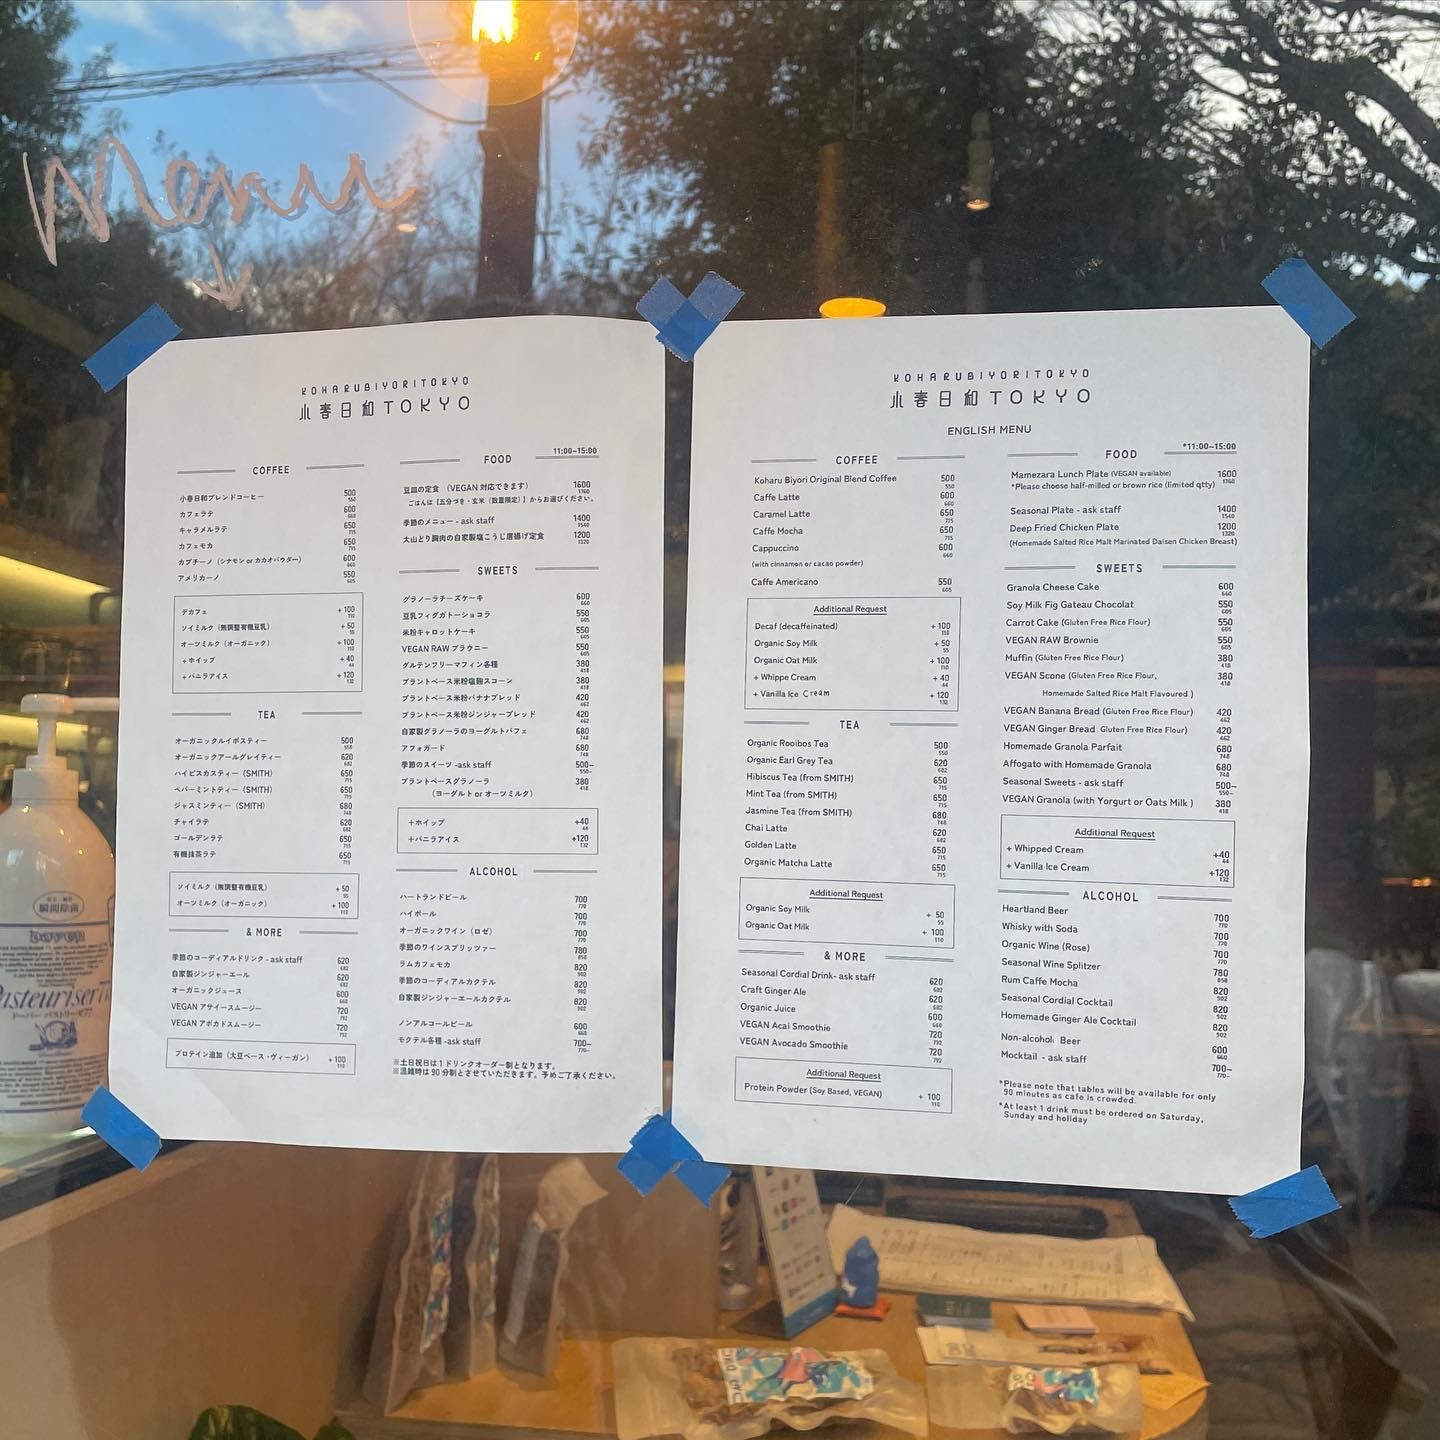 Menu
KOHARUBIYORITOKYO
小春日和TOKYO
COFFEE
小春日和ブレンドコーヒー 500 550
カフェラテ 600 660
キャラメルラテ 650 715
カフェモカ 650 715
カプチーノ (シナモン or カカオパウダー) 600 660
アメリカーノ 550 605
デカフェ +100 110
ソイミルク (無調整有機豆乳) +50 55
オーツミルク (オーガニック) +100 110
+ホイップ +40 44
+バニラアイス +120 132
TEA
オーガニックルイボスティー 500 550
オーガニックアールグレイティー 620 682
ハイビスカスティー (SMITH) 650 715
ペパーミントティー (SMITH) 650 715
ジャスミンティー (SMITH) 680 748
チャイラテ 620 682
ゴールデンラテ 650 715
有機抹茶ラテ 650 715
ソイミルク (無調整有機豆乳) +50 55
オーツミルク (オーガニック) +100 110
& MORE
季節のコーディアルドリンク - ask staff 620 682
自家製ジンジャーエール 620 682
オーガニックジュース 600 660
VEGAN アサイースムージー 720 792
VEGAN アボカドスムージー 720 792
プロテイン追加 (大豆ベース・ヴィーガン) +100 110
11:00~15:00
FOOD
豆皿の定食 (VEGAN 対応できます) 1600 1760
ごはんは【五分づき・玄米 (数量限定)】からお選びください。
季節のメニュー - ask staff 1400 1540
大山どり胸肉の自家製塩こうじ唐揚げ定食 1200 1320
SWEETS
グラノーラチーズケーキ 600 660
豆乳フィグガトーショコラ 550 605
米粉キャロットケーキ 550 605
VEGAN RAW ブラウニー 550 605
グルテンフリーマフィン各種 380 418
プラントベース米粉塩麹スコーン 380 418
プラントベース米粉バナナブレッド 420 462
プラントベース米粉ジンジャーブレッド 420 462
自家製グラノーラのヨーグルトパフェ 680 748
アフォガード 680 748
季節のスイーツ -ask staff 500~ 550~
プラントベースグラノーラ 380 418
(ヨーグルト or オーツミルク)
+ホイップ +40 44
+バニラアイス +120 132
ALCOHOL
ハートランドビール 700 770
ハイボール 700 770
オーガニックワイン (ロゼ) 700 770
季節のワインスプリッツァー 780 858
ラムカフェモカ 820 902
季節のコーディアルカクテル 820 902
自家製ジンジャーエールカクテル 820 902
ノンアルコールビール 600 660
モクテル各種 -ask staff 700~ 770~
※土日祝日は1ドリンクオーダー制となります。
※混雑時は90分制とさせていただきます。予めご了承ください。
KOHARUBIYORITOKYO
小春日和TOKYO
ENGLISH MENU
COFFEE
Koharu Biyori Original Blend Coffee 500 550
Caffe Latte 600 660
Caramel Latte 650 715
Caffe Mocha 650 715
Cappuccino 600 660
(with cinnamon or cacao powder)
Caffe Americano 550 605
Additional Request
Decaf (decaffeinated) +100 110
Organic Soy Milk +50 55
Organic Oat Milk +100 110
+ Whippe Cream +40 44
+ Vanilla Ice Cream +120 132
TEA
Organic Rooibos Tea 500 550
Organic Earl Grey Tea 620 682
Hibiscus Tea (from SMITH) 650 715
Mint Tea (from SMITH) 650 715
Jasmine Tea (from SMITH) 680 748
Chai Latte 620 682
Golden Latte 650 715
Organic Matcha Latte 650 715
Additional Request
Organic Soy Milk +50 55
Organic Oat Milk +100 110
& MORE
Seasonal Cordial Drink- ask staff 620 682
Craft Ginger Ale 620 682
Organic Juice 600 660
VEGAN Acai Smoothie 720 792
VEGAN Avocado Smoothie 720 792
Additional Request
Protein Powder (Soy Based, VEGAN) +100 110
*11:00~15:00
FOOD
Mamezara Lunch Plate (VEGAN available) 1600 1760
*Please choose half-milled or brown rice (limited qtty)
Seasonal Plate - ask staff 1400 1540
Deep Fried Chicken Plate 1200 1320
(Homemade Salted Rice Malt Marinated Daisen Chicken Breast)
SWEETS
Granola Cheese Cake 600 660
Soy Milk Fig Gateau Chocolat 550 605
Carrot Cake (Gluten Free Rice Flour) 550 605
VEGAN RAW Brownie 550 605
Muffin (Gluten Free Rice Flour) 380 418
VEGAN Scone (Gluten Free Rice Flour, 380 418
Homemade Salted Rice Malt Flavoured )
VEGAN Banana Bread (Gluten Free Rice Flour) 420 462
VEGAN Ginger Bread Gluten Free Rice Flour) 420 462
Homemade Granola Parfait 680 748
Affogato with Homemade Granola 680 748
Seasonal Sweets - ask staff 500~ 550~
VEGAN Granola (with Yorgurt or Oats Milk ) 380 418
Additional Request
+ Whipped Cream +40 44
+ Vanilla Ice Cream +120 132
ALCOHOL
Heartland Beer 700 770
Whisky with Soda 700 770
Organic Wine (Rose) 700 770
Seasonal Wine Splitzer 780 858
Rum Caffe Mocha 820 902
Seasonal Cordial Cocktail 820 902
Homemade Ginger Ale Cocktail 820 902
Non-alcohol Beer 600 660
Mocktail - ask staff 700~ 770~
*Please note that tables will be available for only
90 minutes as cafe is crowded.
*At least 1 drink must be ordered on Saturday,
Sunday and holiday
瞬間除菌
DOVER
Pasteuriser77
パストリーゼ77